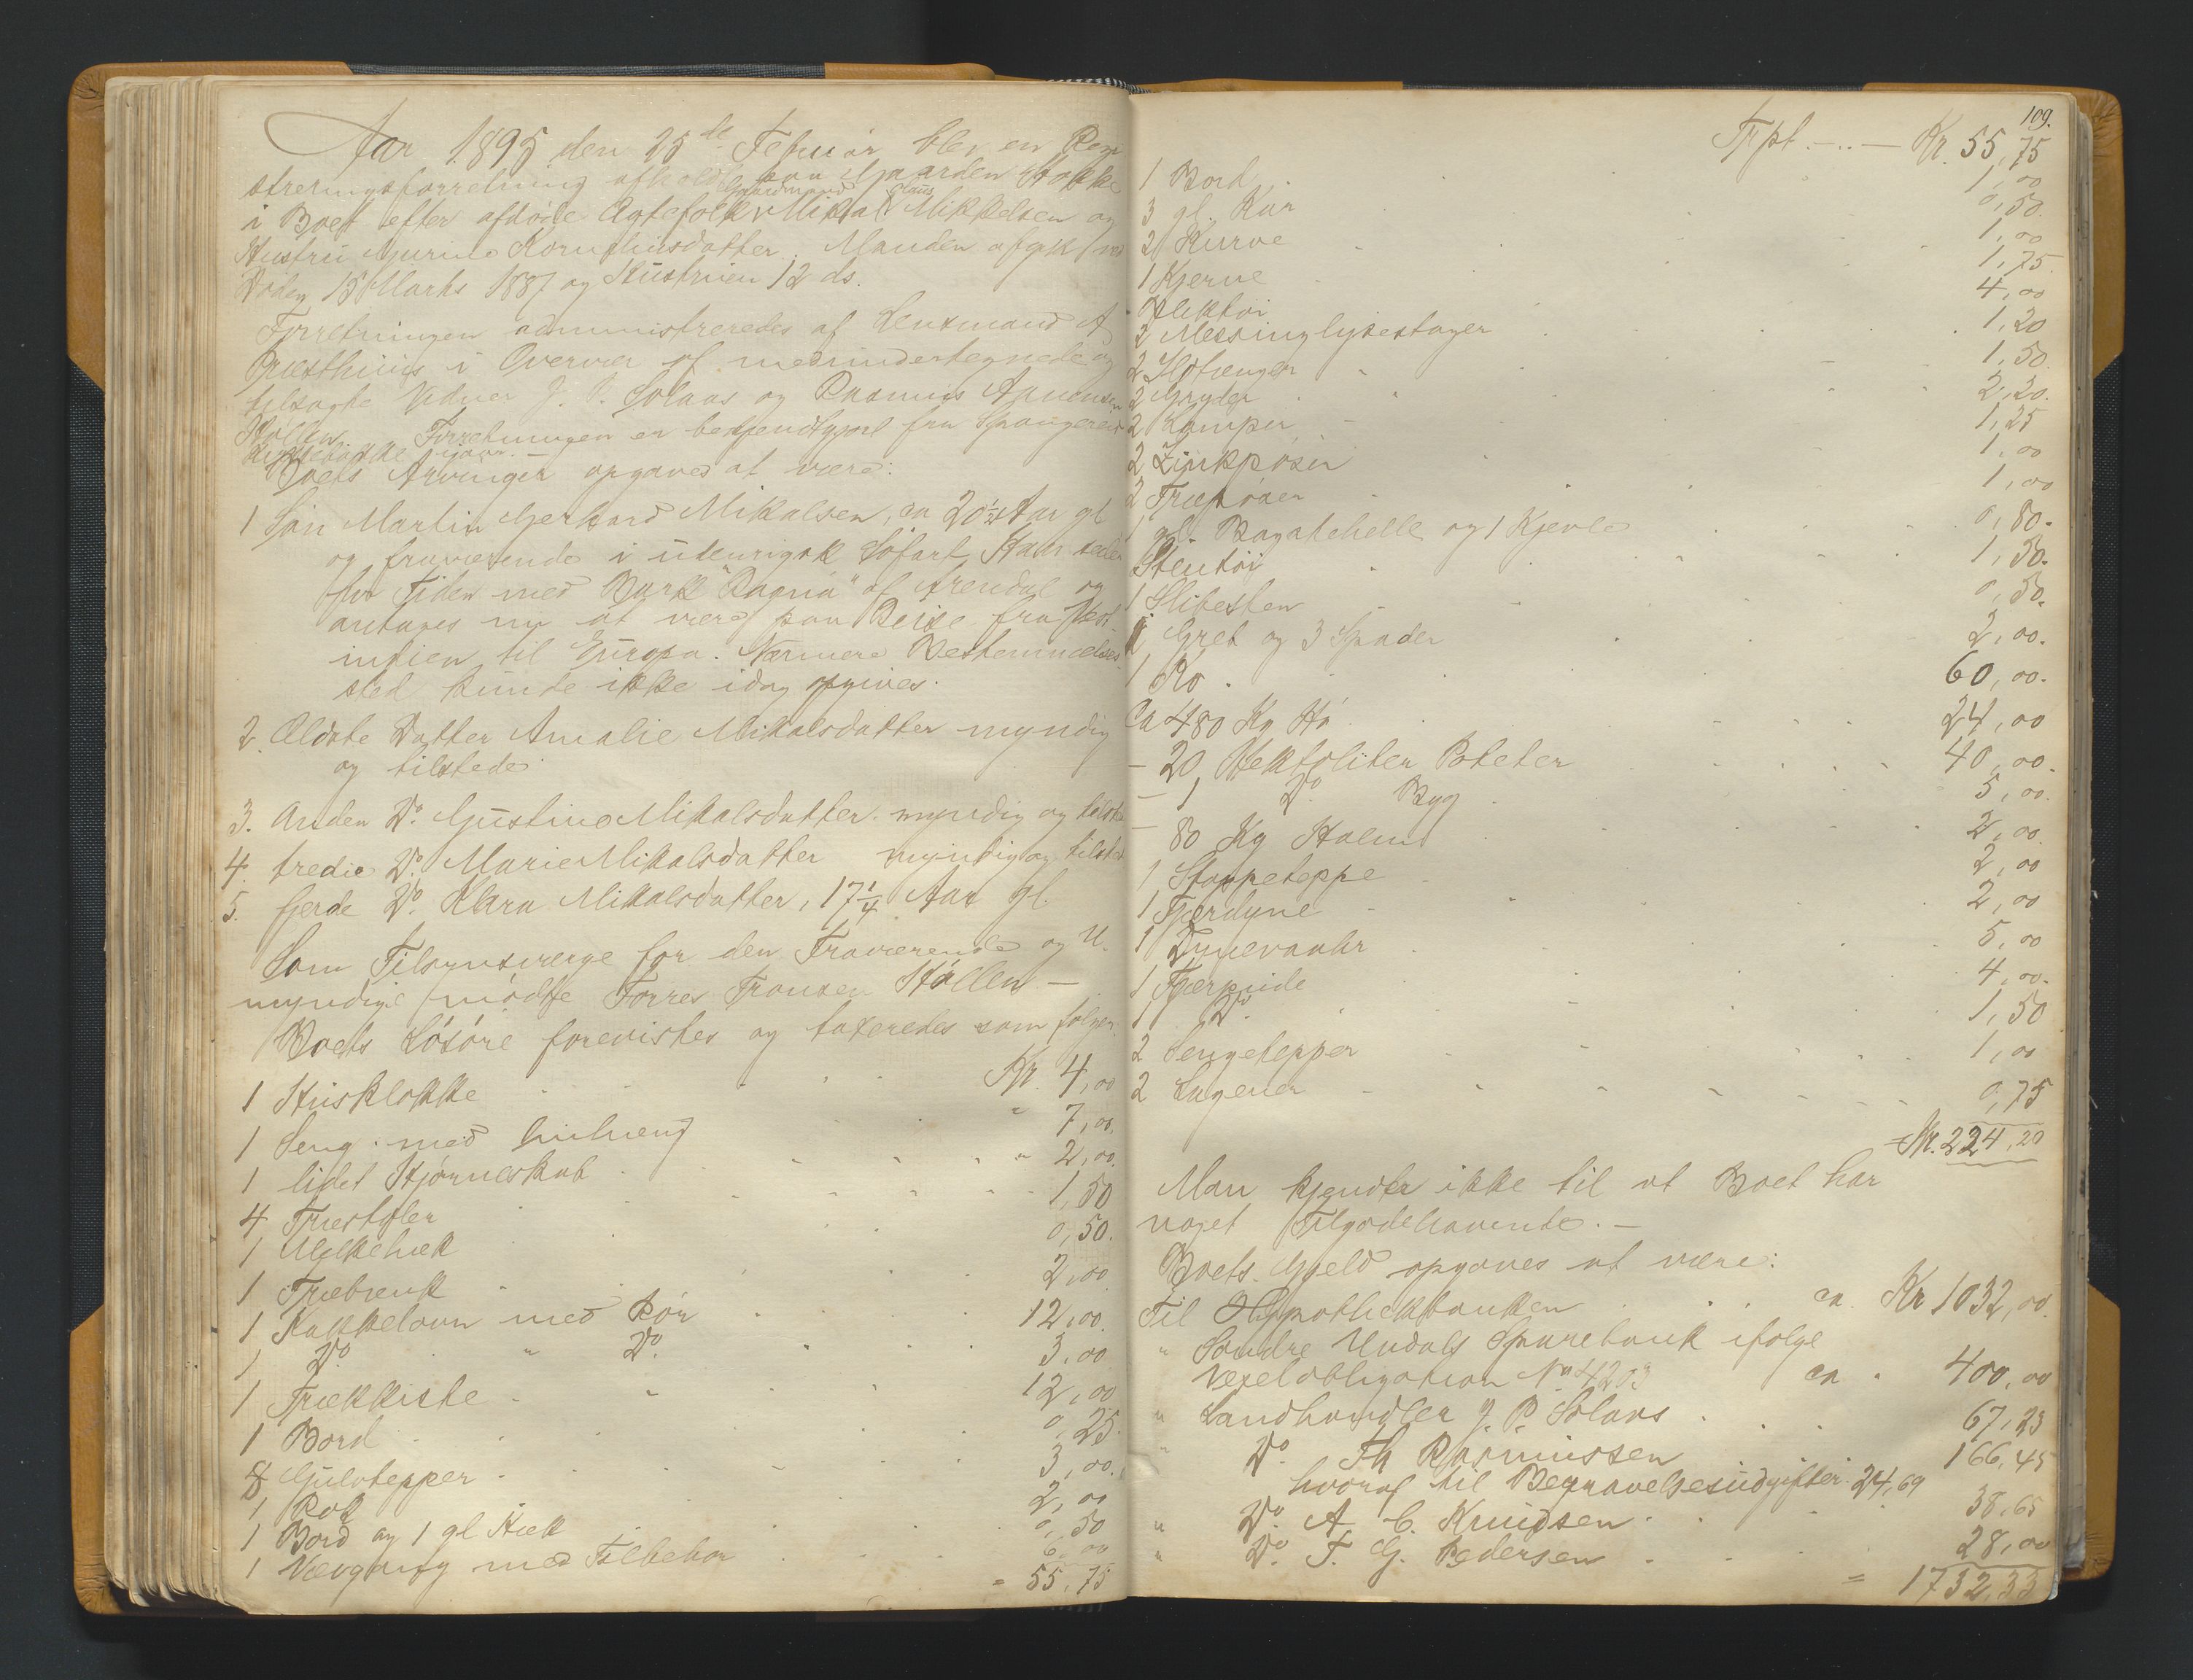 Aar 1895 den 25de Februar blev en Regi
streringsforretning afholdt paa Gaarden Stokke
i Boet efter afdøde Ægtefolk Gaardmand Mikal Claus Mikkelsen og
Hustru Gurine Korneliusdatter. Manden afgik ved
Døden 15 Marts 1887 og Hustruen 12 ds.
Forretningen administreredes af Lensmand A
Præsthuus i Overvær af medundertegnede og
tilsagte Vidner J. P. Solaas og Rasmus
Støllen. Forretningen er bekjendtgjort fra Spangereid
Kirkebakke igaar.
Boets Arvinger opgaves at være:
1 Søn Martin Gerhard Mikalsen, ca 20½ Aar gl
og fraværende i udenrigsk Søfart, Han seiler
for Tiden med Bark "Ragna" af Arendal og
antages nu at være paa Reise fra Vest-
indien til Europa. Nærmere Bestemmelses-
sted kunde ikke idag opgives.
2. Ældste Datter Amalie Mikalsdatter myndig
og tilstede
3. Anden Do. Gustine Mikalsdatter. myndig og tilstede
4. tredie Do. Marie Mikalsdatter myndig og tilsted
5. fjerde Do. Klara Mikalsdatter, 17¼ Aar gl.
Som Tilsynsværge for den Fraværende og U-
myndige mødte Torres Tronsen Støllen —
Boets Løsøre forevistes og taxeredes som følger.
1 Husklokke Kr. 4,00
1 Seng med Indhæng " 7,00.
1 lidet Hjørneskab " 2,00.
4 Træstoler 1,50
1 Melkehæk 0,50.
1 Træbænk 2,00
1 Kakkelovn med Rør 12,00.
1 Do. " Do. 3,00
1 Trækkiste 12,00
1 Bord 0,25.
8 Gulvtepper 3,00.
1 Rok 2,00
1 Bord og 1 gl Hæk 0,50
1 Vævgang med Tilbehør 6,00
= 55,75
109.
Trpt. -..- Kr. 55,75
1 Bord 1,00
3 gl. Kar 0,50.
2 Kurve 1,00
1 Kjerne 1,75.
4,00
2 Messinglysestager 1,20
2 Ildtænger 1,50.
2 Gryder 2,20.
2 Lamper 1,25
2 Zinkpøser 1,00
2 Træpøser 1,00
1 gl. Bagatehelle og 1 Kjevle 0,80.
Stentøi 1,50.
1 Slibesten 0,50.
1 Gret og 3 Spader 2,00.
1 Ko 60,00.
Ca 480 Kg Hø 24,00
— 20 Hektoliter Poteter 40,00.
— 1 Do. Byg 5,00.
— 80 Kg Halm 2,00.
1 Stoppeteppe 2,00
1 Fjerdyne 2,00
1 Dynevaahr 5,00
1 Fjerpude 4,00.
1 Do. 1,50
2 Sengetepper 1,00
2 Lagener 0,75
= Kr. 224,20
Man kjender ikke til at Boet har
noget Tilgodehavende. —
Boets Gjeld opgaves at være:
Til Hypothekbanken ca. Kr 1032,00.
" Søndre Undals Sparebank ifølge
Vexelobligation No 4203 ca " 400,00
" Landhandler J. P. Solaas 67,23
" Do. Th Rasmussen 166,45
hvoraf til Begravelsesudgifter 24,69
" Do. A C. Knudsen 38,65
" Do. T. G. Pedersen 28,00
= 1732,33